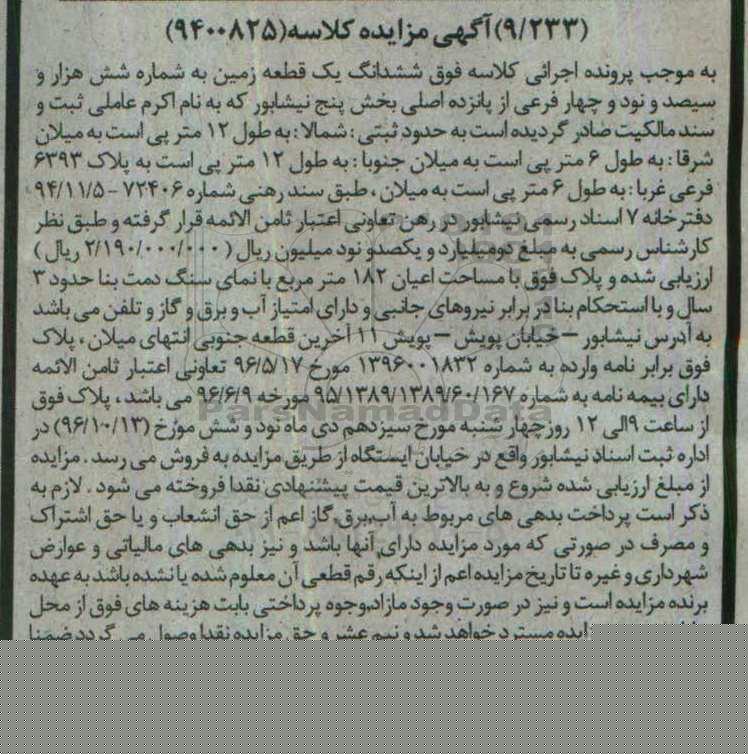 (۹/۲۳۳)آگهی مزایده کلاسه(۹۴۰۰۸۲۵)
به موجب پرونده اجرائی کلاسه فوق ششدانگ یک قطعه زمین به شماره شش هزار و
سیصد و نود و چهار فرعی از پانزده اصلی بخش پنج نیشابور که به نام اکرم عاملی ثبت و
سند مالکیت صادر گردیده است به حدود ثبتی : شمالا : به طول ۱۲ متر پی است به میلان
شرقا : به طول ۶ متر پی است به میلان جنوبا : به طول ۱۲ متر پی است به پلاک ۶۳۹۳
فرعی غربا : به طول ۶ متر پی است به میلان ، طبق سند رهنی شماره ۷۲۴۰۶ - ۹۴/۱۱/۵
دفترخانه ۷ اسناد رسمی نیشابور در رهن تعاونی اعتبار ثامن الائمه قرار گرفته و طبق نظر
کارشناس رسمی به مبلغ دومیلیارد و یکصدو نود میلیون ریال ( ۲/۱۹۰/۰۰۰/۰۰۰ ریال )
ارزیابی شده و پلاک فوق با مساحت اعیان ۱۸۲ متر مربع با نمای سنگ دمت بنا حدود ۳
سال و با استحکام بنا در برابر نیروهای جانبی و دارای امتیاز آب و برق و گاز و تلفن می باشد
به آدرس نیشابور – خیابان پویش – پویش ۱۱ آخرین قطعه جنوبی انتهای میلان ، پلاک
فوق برابر نامه وارده به شماره ۱۳۹۶۰۰۱۸۳۲ مورخ ۹۶/۵/۱۷ تعاونی اعتبار ثامن الائمه
دارای بیمه نامه به شماره ۹۵/۱۳۸۹/۱۳۸۹/۶۰/۱۶۷ مورخه ۹۶/۶/۹ می باشد ، پلاک فوق
از ساعت ۹الی ۱۲ روز چهار شنبه مورخ سیزدهم دی ماه نود و شش مورخ (۹۶/۱۰/۱۳) در
اداره ثبت اسناد نیشابور واقع در خیابان ایستگاه از طریق مزایده به فروش می رسد . مزایده
از مبلغ ارزیابی شده شروع و به بالاترین قیمت پیشنهادی نقدا فروخته می شود . لازم به
ذکر است پرداخت بدهی های مربوط به آب،برق،گاز اعم از حق انشعاب و یا حق اشتراک
و مصرف در صورتی که مورد مزایده دارای آنها باشد و نیز بدهی های مالیاتی و عوارض
شهرداری و غیره تا تاریخ مزایده اعم از اینکه رقم قطعی آن معلوم شده یا نشده باشد به عهده
برنده مزایده است و نیز در صورت وجود مازاد،وجوه پرداختی بابت هزینه های فوق از محل
مسترد خواهد شد و نیم عشر و حق مزایده نقدا وصول می گردد ضمنا
ParsNamadData